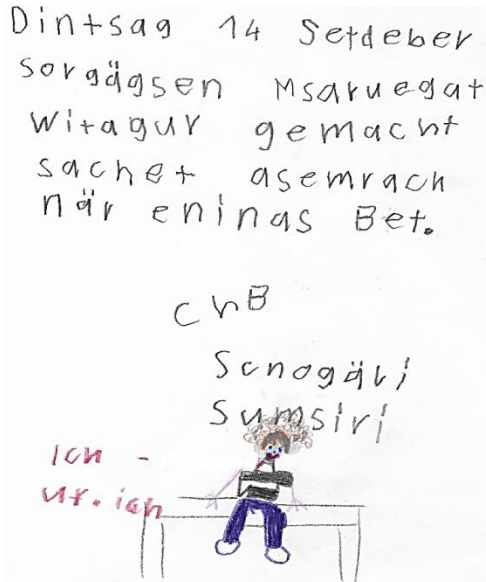 Dintsag 14 Setdeber
sorgägsen Msaruegat
witagur gemacht
sachet asemrach
när eninas Bet.
ChB
Schogäri
Sumsiri
Ich -
ur. ich